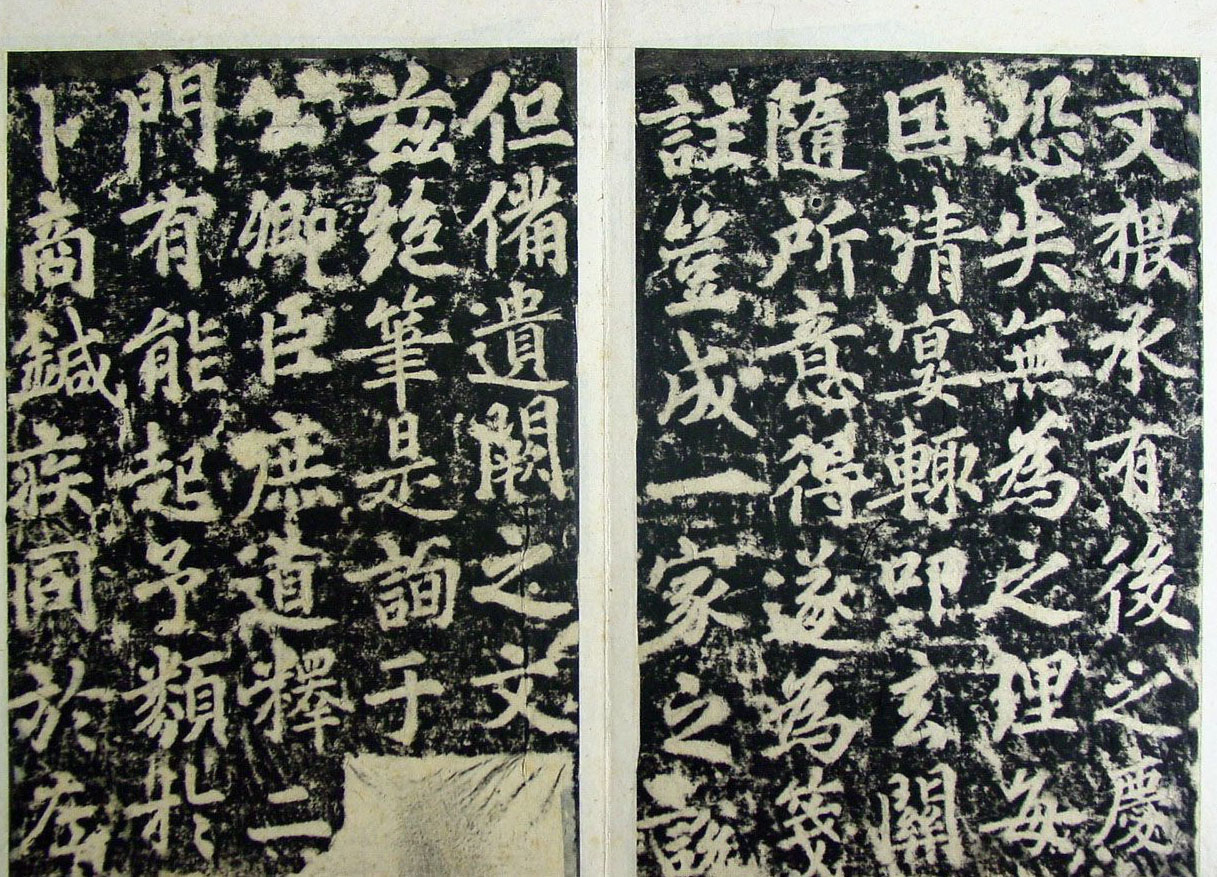 文猥承有後之慶
恐失無為之理每
囙清宴輒叩玄關
隨所意得遂為箋
註豈成一家之說
但備遺闕之文
兹絕筆是詢于
公卿臣庶道釋二
門有能起予類扵
卜商鍼疾同於左